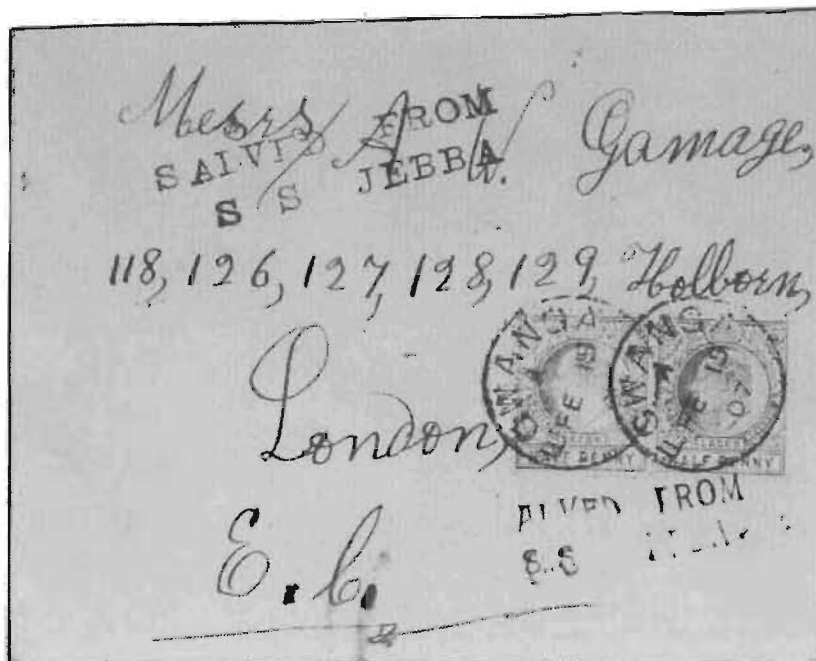 Messrs A. W. Gamage,
SALVED FROM
S S JEBBA
118, 126, 127, 128, 129, Holborn,
London,
E.C.
GWANGA
FE 19
GWANGA
FE 19
07
HALF PENNY
ALVED FROM
S.S